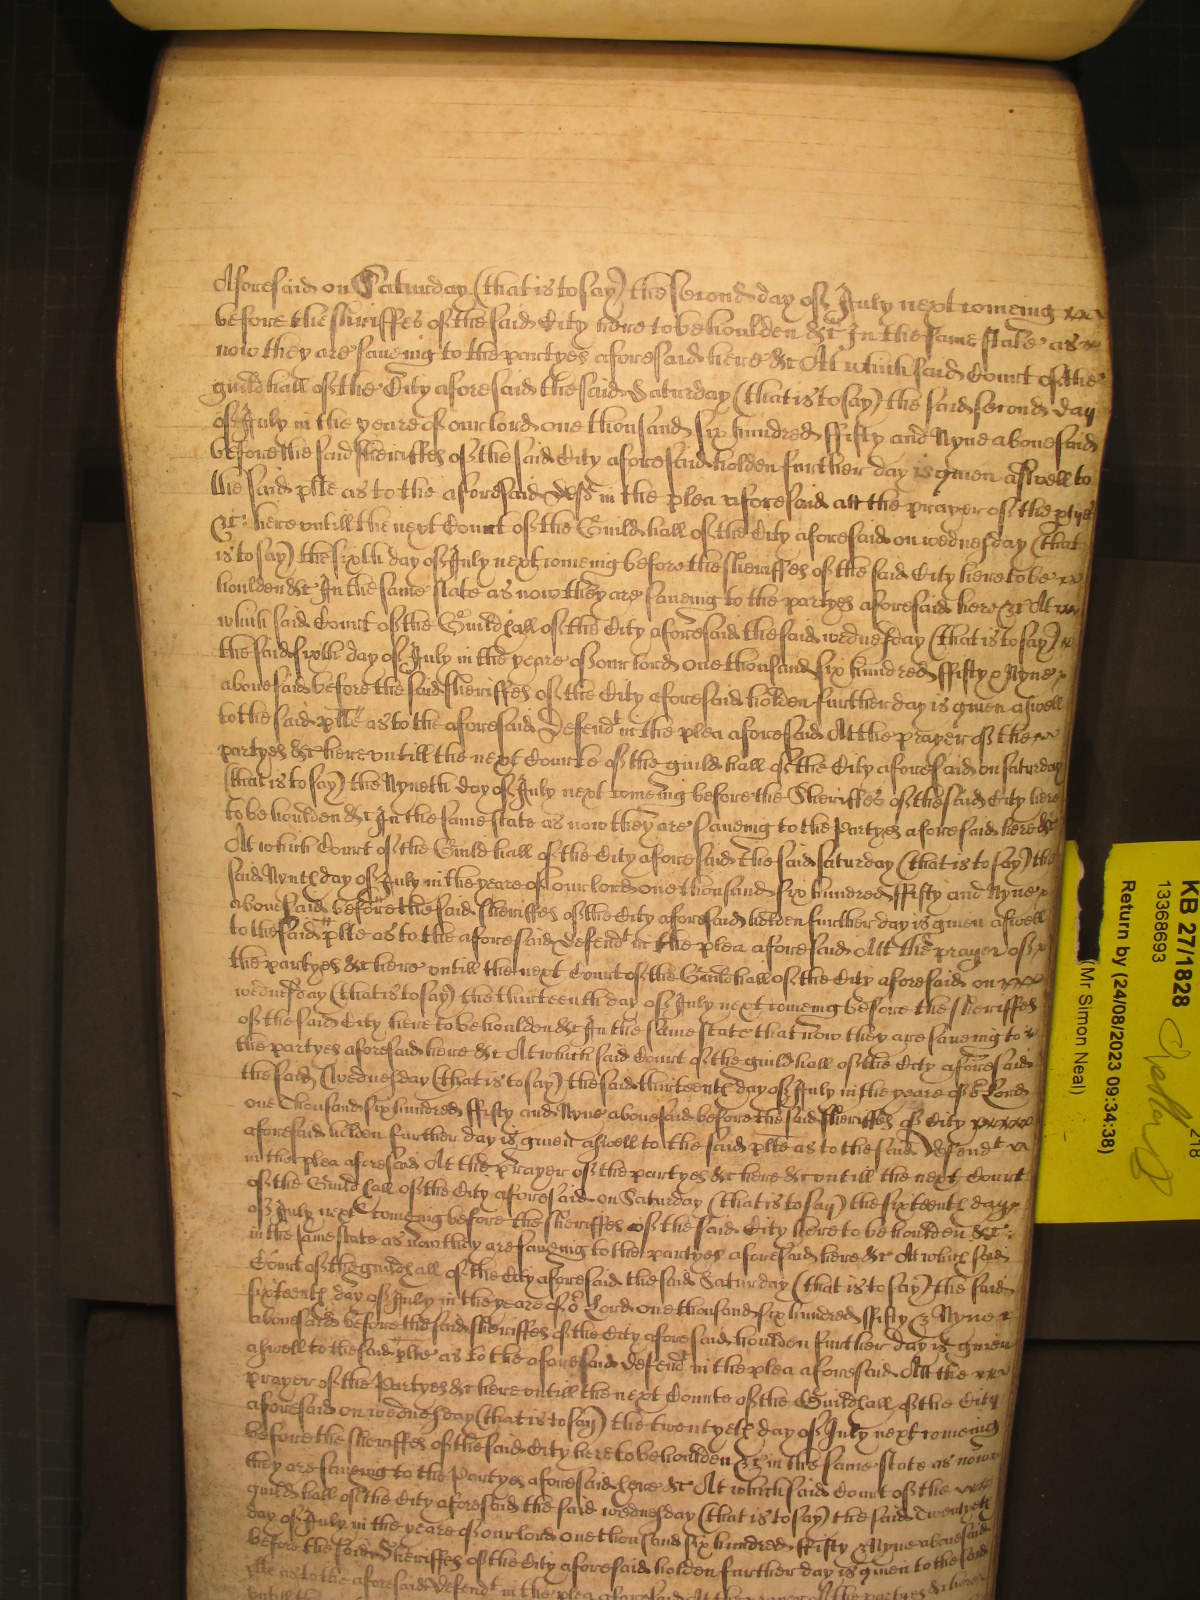 Aforesaid on Saturday (that is to say) the second day of July next comeing
before the sheriffes of the said City here to be houlden &c In the same state as
now they are saveing to the partyes aforesaid here &c At which said Court of the
guildhall of the City aforesaid the said Saturday (that is to say) the said second day
of July in the yeare of our lord one thousand six hundred ffifty and Nyne abovesaid
before the said sheriffes of the said City aforesaid holden further day is given aswell to
the said plte as to the aforesaid Deft in the plea aforesaid att the prayer of the ptyes
&c: here untill the next Court of the Guildhall of the City aforesaid on wednesday (that
is to say) the sixth day of July next comeing before the sheriffes of the said City here to be
houlden &c In the same state as now they are saveing to the partyes aforesaid here &c At
which said Court of the Guildhall of the City aforesaid the said wednesday (that is to say)
the said sixth day of July in the yeare of our lord one thousand six hundred ffifty & Nyne
abovesaid before the said sheriffes of the City aforesaid holden further day is given aswell
to the said plte as to the aforesaid Defendt in the plea aforesaid At the prayer of the
partyes &c here untill the next Courte of the guildhall of the City aforesaid on saturday
(that is to say) the Nyneth day of July next comeing before the Sheriffes of the said City here
to be houlden &c In the same state as now they are saveing to the Partyes aforesaid here &c
At which Court of the Guildhall of the City aforesaid the said saturday (that is to say) the
said Nynth day of July in the yeare of our lord one thousand six hundred ffifty and Nyne
abovesaid before the said sheriffes of the City aforesaid holden further day is given aswell
to the said plte as to the aforesaid Defendt in the plea aforesaid Att the prayer of
the partyes &c here untill the next Court of the Guildhall of the City aforesaid on
wednesday (that is to say) the thirteenth day of July next comeing before the sheriffes
of the said City here to be houlden &c In the same state that now they are saveing to
the partyes aforesaid here &c At which said Court of the guildhall of the City aforesaid
the said Wednesday (that is to say) the said thirteenth day of July in the yeare of or Lord
one Thousand six hundred ffifty and Nyne abovesaid before the said sheriffes of City
aforesaid holden further day is given aswell to the said plte as to the said Defendt
in the plea aforesaid At the prayer of the partyes &c here &c untill the next Court
of the Guildhall of the City aforesaid on Saturday (that is to say) the sixteenth day
of July next comeing before the sheriffes of the said City here to be houlden &c:
in the same state as now they are saveing to the partyes aforesaid here &c At which said
Court of the guildhall of the City aforesaid the said Saturday (that is to say) the said
sixteenth day of July in the yeare of or Lord one thousand six hundred ffifty & Nyne
abovesaid before the said sheriffes of the City aforesaid houlden further day is given
aswell to the said plte as to the aforesaid Defendt in the plea aforesaid Att the
prayer of the Partyes &c here untill the next Courte of the Guildhall of the City
aforesaid on wednesday (that is to say) the twentyeth day of July next comeing
before the sheriffes of the said City here to be houlden &c in the same state as now
they are saveing to the Partyes aforesaid here &c At which said Court of the
guildhall of the City aforesaid the said wednesday (that is to say) the said Twentyeth
day of July in the yeare of our lord one thousand six hundred ffifty & Nyne abovesaid
before the said Sheriffes of the City aforesaid holden further day is given to the said
plte as to the aforesaid Defendt in the plea aforesaid At the prayer of the partyes &c here
untill the
KB 27/1828
13368693
Return by (24/08/2023 09:34:38)
(Mr Simon Neal)
218